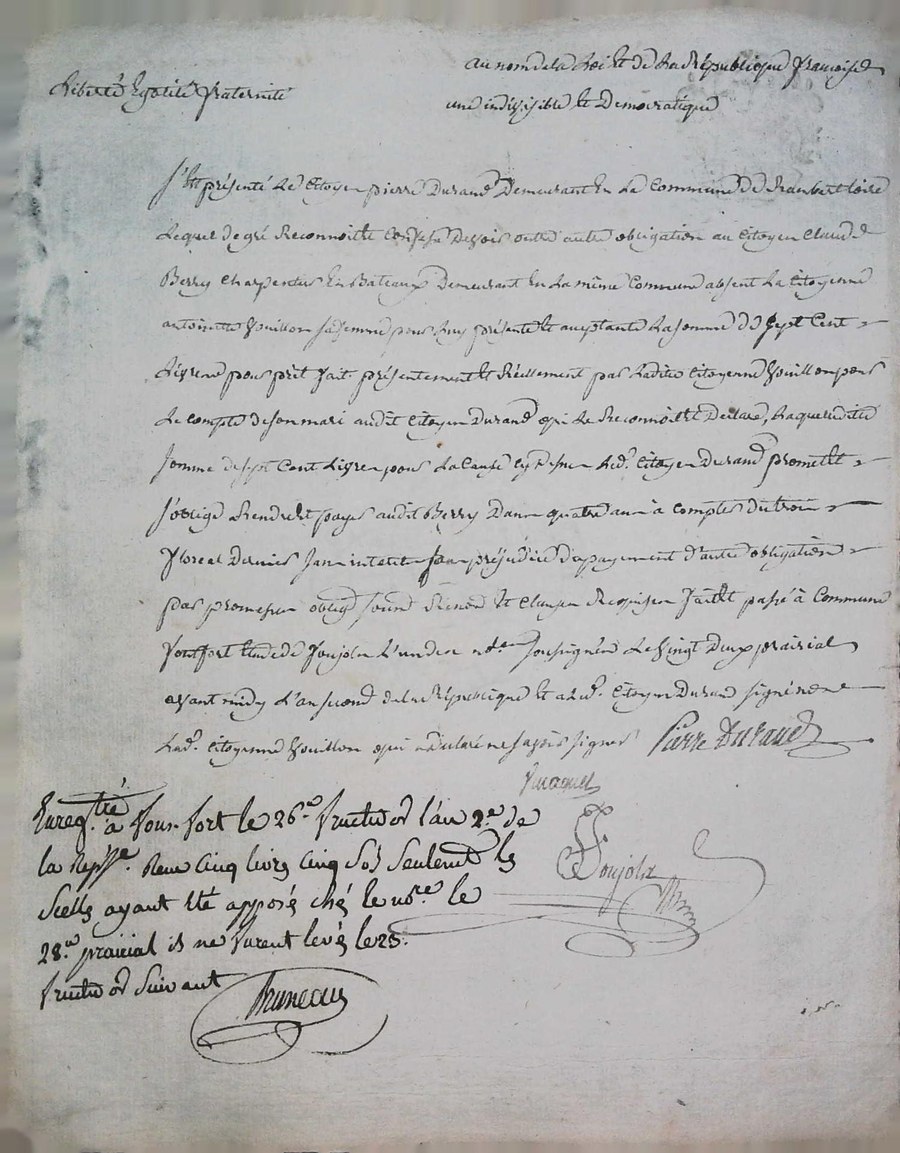 au nom de la Loi et de La République françoise
Liberté Egalité fraternité
une indivisible et Democratique
S'est présenté Le Citoyen pierre Durand Demeurant En La Commune de Rambert loire
Lequel de gré Reconnoitt Confesse Devoir outre autre obligation au Citoyen Claude
Berry Charpentier En Bateaux Demeurant En La même Commune absent La Citoyenne
antoinette Vouillon sa femme pour Luy présente et acceptante La somme de Sept Cent
Livres pour prêt fait présentement et Réellement par Ladite Citoyenne Vouillon pour
Le compte de son mari audit Citoyen Durand qui Le Reconnoitt Declare, Laquelle dite
somme de sept Cent Livres pour La Cause cy dessus Led. Citoyen Durand promett et
s'oblige Rendre et payer audit Berry Dans quatre ans à compter du trois
floreal Dernier sans interet sans préjudice de payement d'autre obligation
par promesse oblig. soum. Renond. et Clauses Requises fait et passé à Commune
Fontfort Etude de Soujols L'un des not. soussignés Le Vingt Deux prairial
avant midy L'an second de la République et a Led. Citoyen Durand signé non
Lad. Citoyenne Vouillon qui a declaré ne sçavoir signer Pierre Durand
Enreg.tré à Fon-fort le 26.e fructidor l'an 2.e de
la Rep. Reçu Cinq livres Cinq Sols Seulement les
Scellés ayant été apposés chés le no.re le
28.e prairial ils ne furent levés le 25.
fructidor Suivant
Soujols
Bruneau